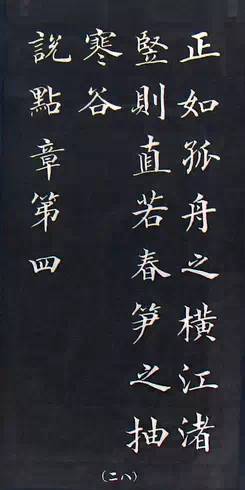 正如孤舟之橫江渚
竪則直若春笋之抽
寒谷
說點章第四
(二八)